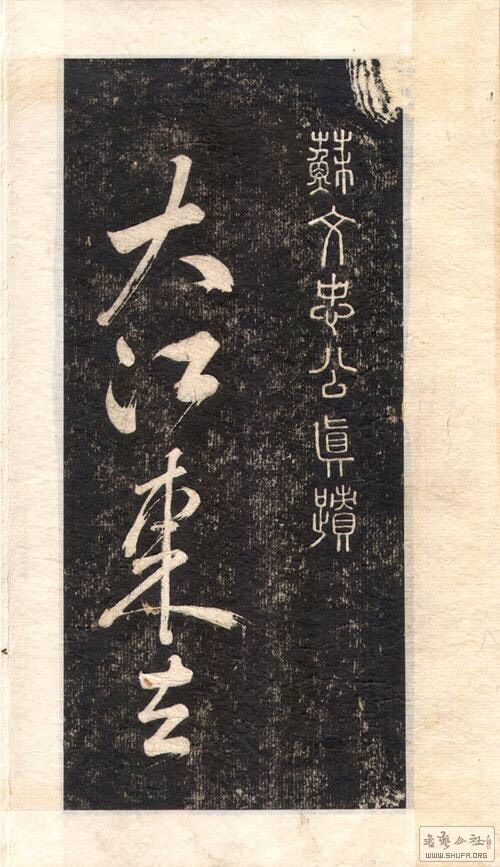 蘇文忠公真蹟
大江東去
書藝公社
WWW.SHUFA.ORG